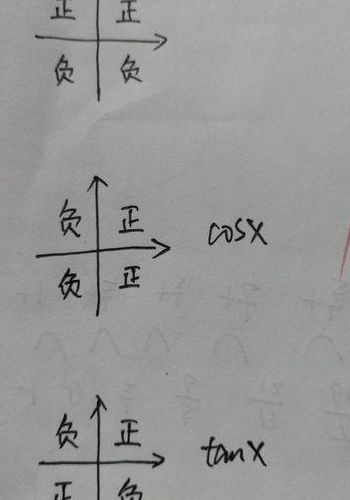 正 正
负 负
负 正 cosx
负 正
负 正 tanx
正 负